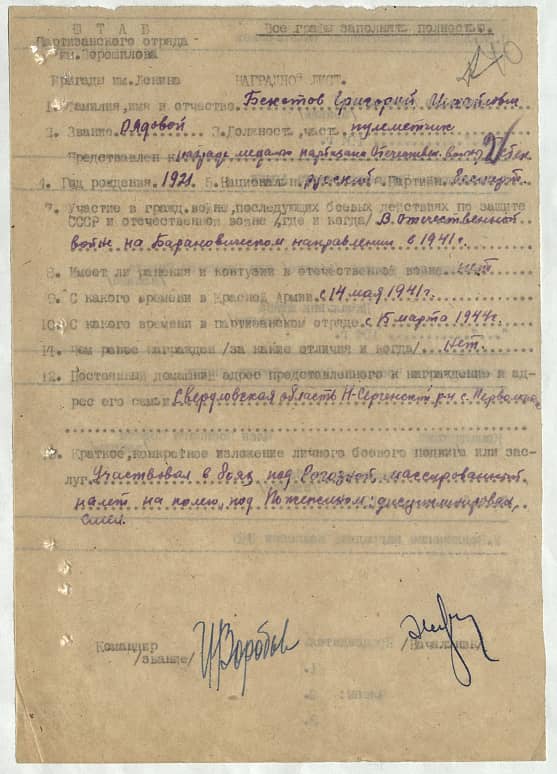 ШТАБ
Все графы заполнять полностью.
Партизанского отряда
им. Ворошилова
Бригады им. Ленина
НАГРАДНОЙ ЛИСТ.
1. Фамилия, имя и отчество Бекетов Григорий Михайлович
2. Звание Рядовой 3. Должность, часть пулеметчик
Представлен к награде медалью партизана Отечествен. войны 2 степен
4. Год рождения 1921 5. Национальн. русский Партийн. беспарт.
7. Участие в гражд. войне, последующих боевых действиях по защите
СССР и отечественной войне /где и когда/ В отечественной
войне на Барановичском направлении в 1941 г.
8. Имеет ли ранения и контузии в отечественной войне нет
9. С какого времени в Красной Армии с 14 мая 1941 г.
10. С какого времени в партизанском отряде с 15 марта 1944 г.
11. Чем ранее награжден /за какие отличия и когда/ Нет.
12. Постоянный домашний адрес представленного к награждению и ад-
рес его семьи Свердловская область Н-Сергинский р-н с.
13. Краткое, конкретное изложение личного боевого подвига или зас-
луг Участвовал в боях под массированный
налет на под дисциплинирован,
смел.
Командир
/звание/
Начальник